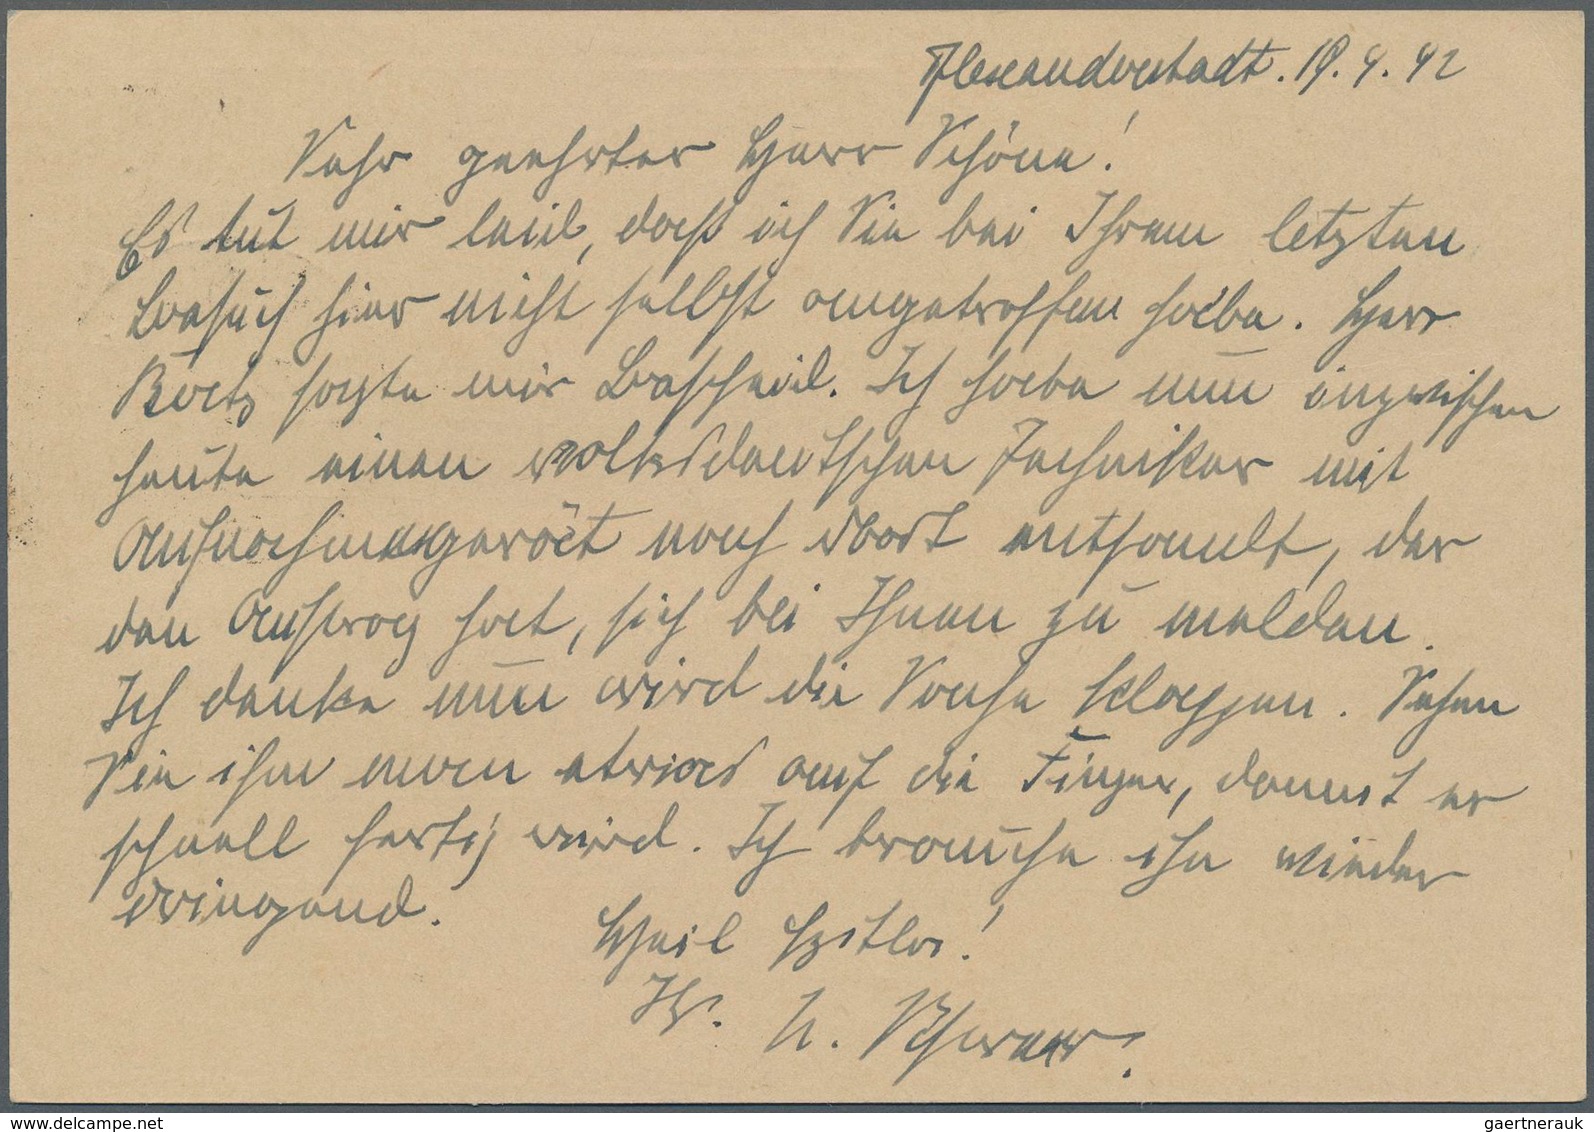 Alexanderstadt. 19. 4. 42
Sehr geehrter Herr Schöne!
Es tut mir leid, daß ich Sie bei Ihrem letzten
Besuch hier nicht selbst angetroffen habe. Herr
sagte mir Bescheid. Ich habe nun inzwischen
heute einen volksdeutschen Techniker mit
Aufnahmegerät nach dort entsandt, der
den Auftrag hat, sich bei Ihnen zu melden.
Ich denke nun wird die Sache klappen. Sehen
Sie ihm etwas auf die Finger, damit er
schnell fertig wird. Ich brauche ihn wieder
dringend.
Heil Hitler!
Ihr.
gaertnerauk @ delcampe.net